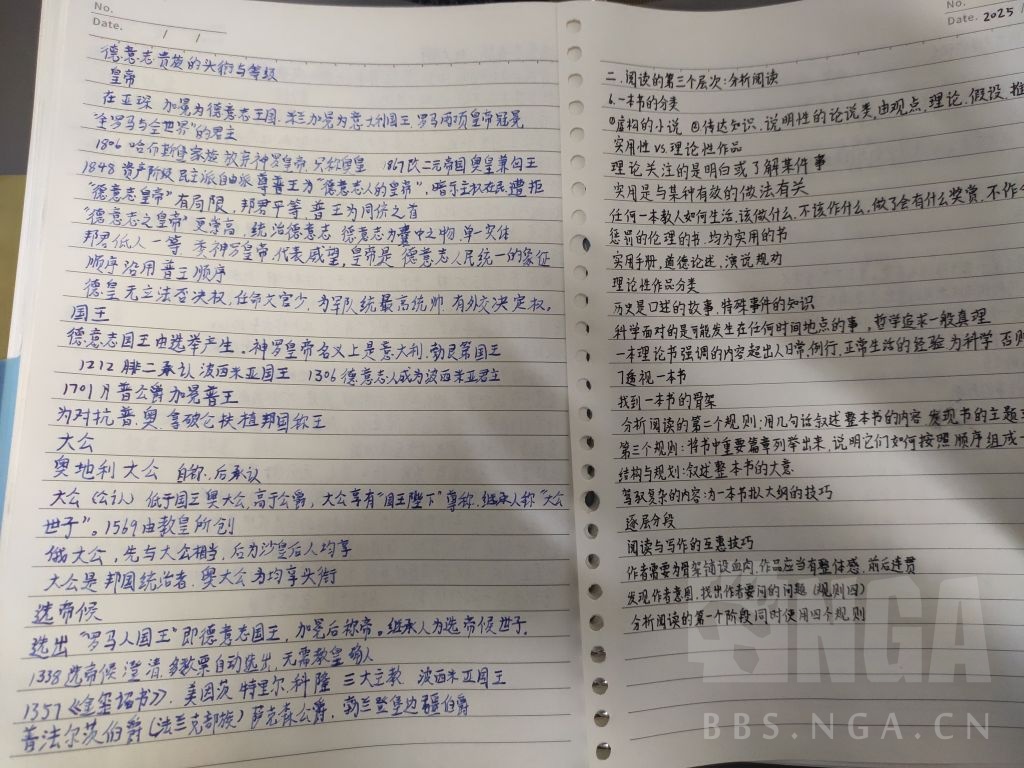 No.
Date.    /    /
德意志贵族的头衔与等级
皇帝
在亚琛 加冕为德意志王国. 米兰加冕为意大利国王. 罗马两项皇帝冠冕
"全罗马与全世界"的君主
1806 哈布斯堡家族放弃神罗皇帝 只称奥皇  1867改二元帝国奥皇兼匈王
1848 资产阶级 民主派自由派尊普王为"德意志人的皇帝", 暗示主权在民遭拒
"德意志皇帝"有局限, 邦君平等 普王为同侪之首
"德意志之皇帝"更崇高, 统治德意志 德意志为囊中之物. 单一实体
邦君低人一等 承神罗皇帝, 代表威望, 皇帝是 德意志人民统一的象征
顺序沿用普王顺序
德皇 无立法否决权, 任命文官少, 为军队统最高统帅 有外交决定权.
国王
德意志国王由选举产生. 神罗皇帝名义上是意大利. 勃艮第国王
1212 腓二承认波西米亚国王  1306德意志人成为波西米亚君主
1701月普公爵加冕普王
为对抗普.奥, 拿破仑扶植邦国称王
大公
奥地利大公  自称. 后承认
大公 (公认) 低于国王奥大公, 高于公爵, 大公享有"国王陛下"尊称. 继承人称"大公
世子"。1569由教皇所创
俄大公, 先与大公相当, 后为沙皇后人均享
大公是邦国统治者. 奥大公为均享头衔
选帝候
选出 "罗马人国王"即德意志国王, 加冕后称帝。继承人为选帝候世子.
1338 选帝候 澄清 多数票自动选出, 无需教皇确认
1357《金玺诏书》, 美因茨 特里尔. 科隆 三大主教  波西米亚国王
普法尔茨伯爵(法兰克部族) 萨克森公爵, 勃兰登堡边疆伯爵
No.
Date. 2025 /
二.阅读的第三个层次:分析阅读
6.一本书的分类
①虚构的小说 ②传达知识. 说明性的论说类, 由观点, 理论, 假设, 推
实用性 VS. 理论性作品
理论关注的是明白或了解某件事
实用是与某种有效的做法有关
任何一本教人如何生活, 该做什么, 不该作什么, 做了会有什么奖赏, 不作
惩罚的伦理的书. 均为实用的书
实用手册, 道德论述, 演说规劝
理论性作品分类
历史是口述的故事. 特殊事件的知识
科学面对的是可能发生在任何时间地点的事, 哲学追求一般真理
一本理论书强调的内容超出人日常, 例行, 正常生活的经验为科学 否则
7透视一本书
找到一本书的骨架
分析阅读的第二个规则:用几句话叙述整本书的内容 发现书的主题
第三个规则:将书中重要篇章列举出来, 说明它们如何按照顺序组成
结构与规划:叙述整本书的大意
驾驭复杂的内容:为一本书拟大纲的技巧
逐层分段
阅读与写作的互惠技巧
作者需要为骨架铺设血肉, 作品应当有整体感, 前后连贯
发现作者意图, 找出作者要问的问题 (规则四)
分析阅读的第一个阶段:同时使用四个规则
NGA
BBS.NGA.CN